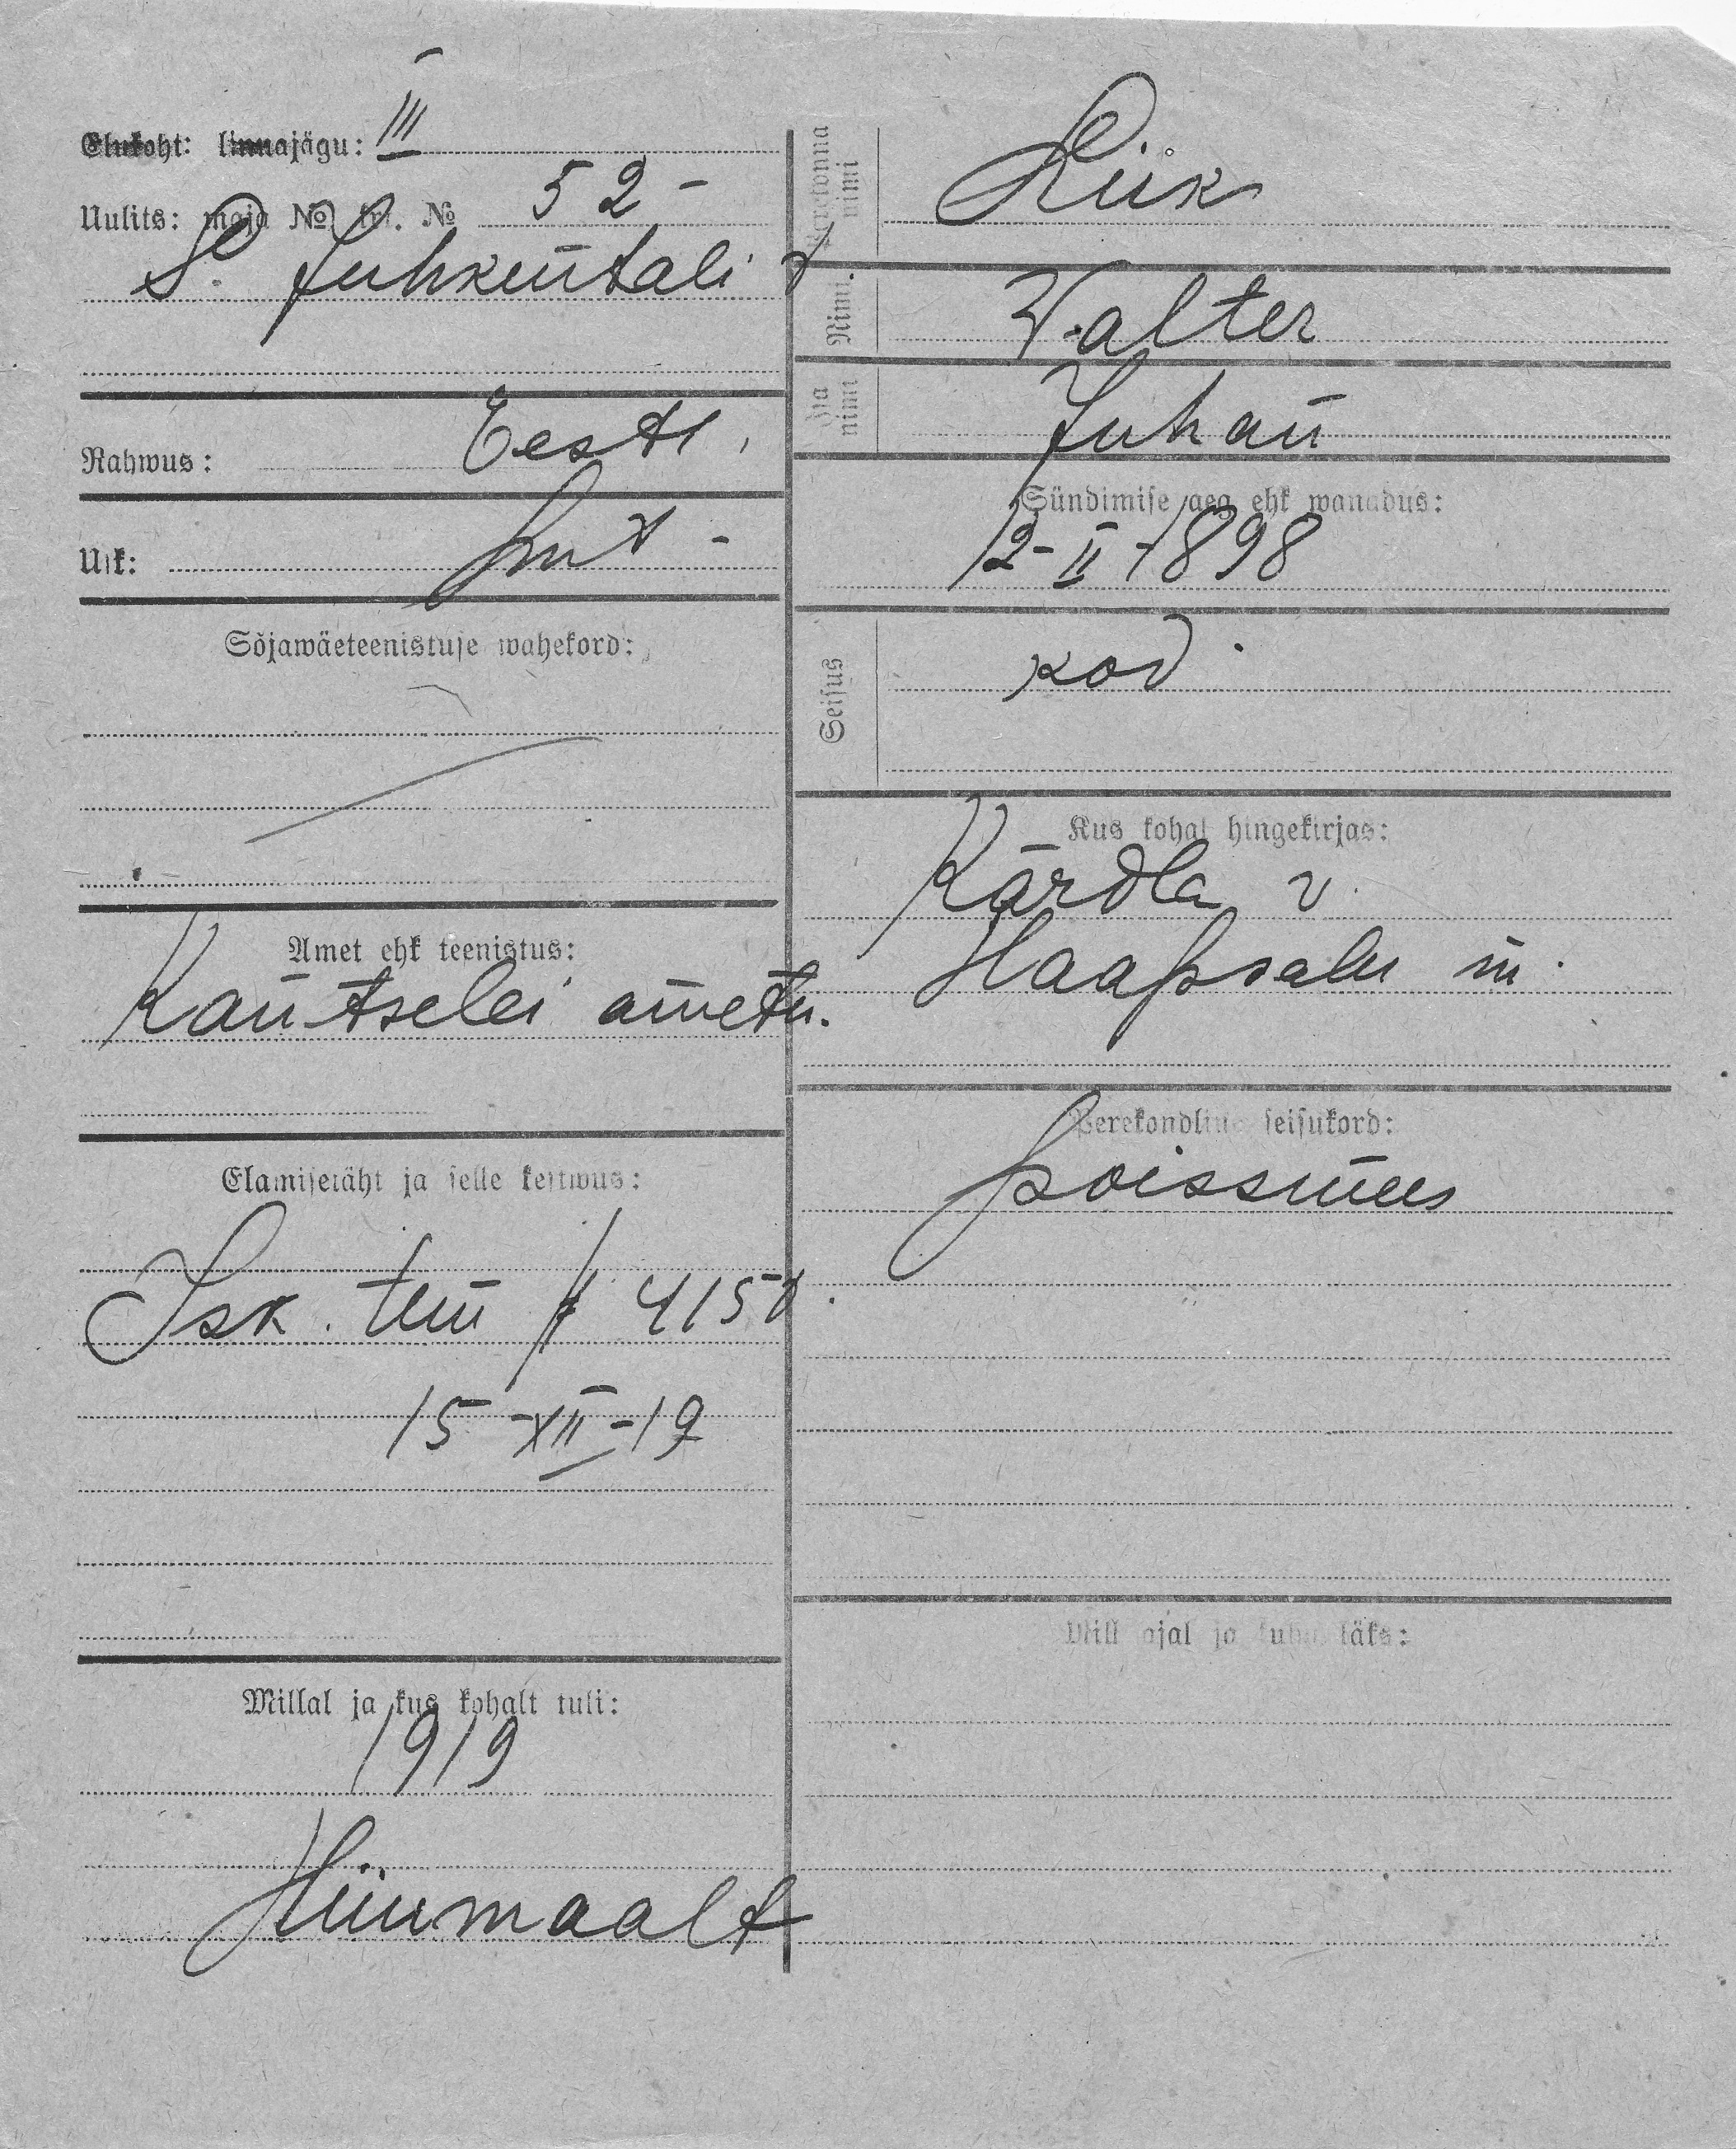 Elukoht: linnajägu: III
Uulits: maja № krt. № 52 -
S. Juhkentali
Rahwus: Eesti.
Usk: Lut -
Sõjawäeteenistuse wahekord:
Amet ehk teenistus:
Kantselei ametn.
Elamisetäht ja selle kestwus:
Isk. tun
15-XII-19
Millal ja kus kohalt tuli:
1919
Hiiumaalt
Perekonna nimi
Riik
Nimi.
Walter
Isa nimi
Juhan
Sündimise aeg ehk wanadus:
12-II-1898
Seisus
kod.
Kus kohal hingekirjas:
Kärdla v.
Haapsalu m.
Perekondline seisukord:
poissmees
Mill ajal ja kuhu läks: